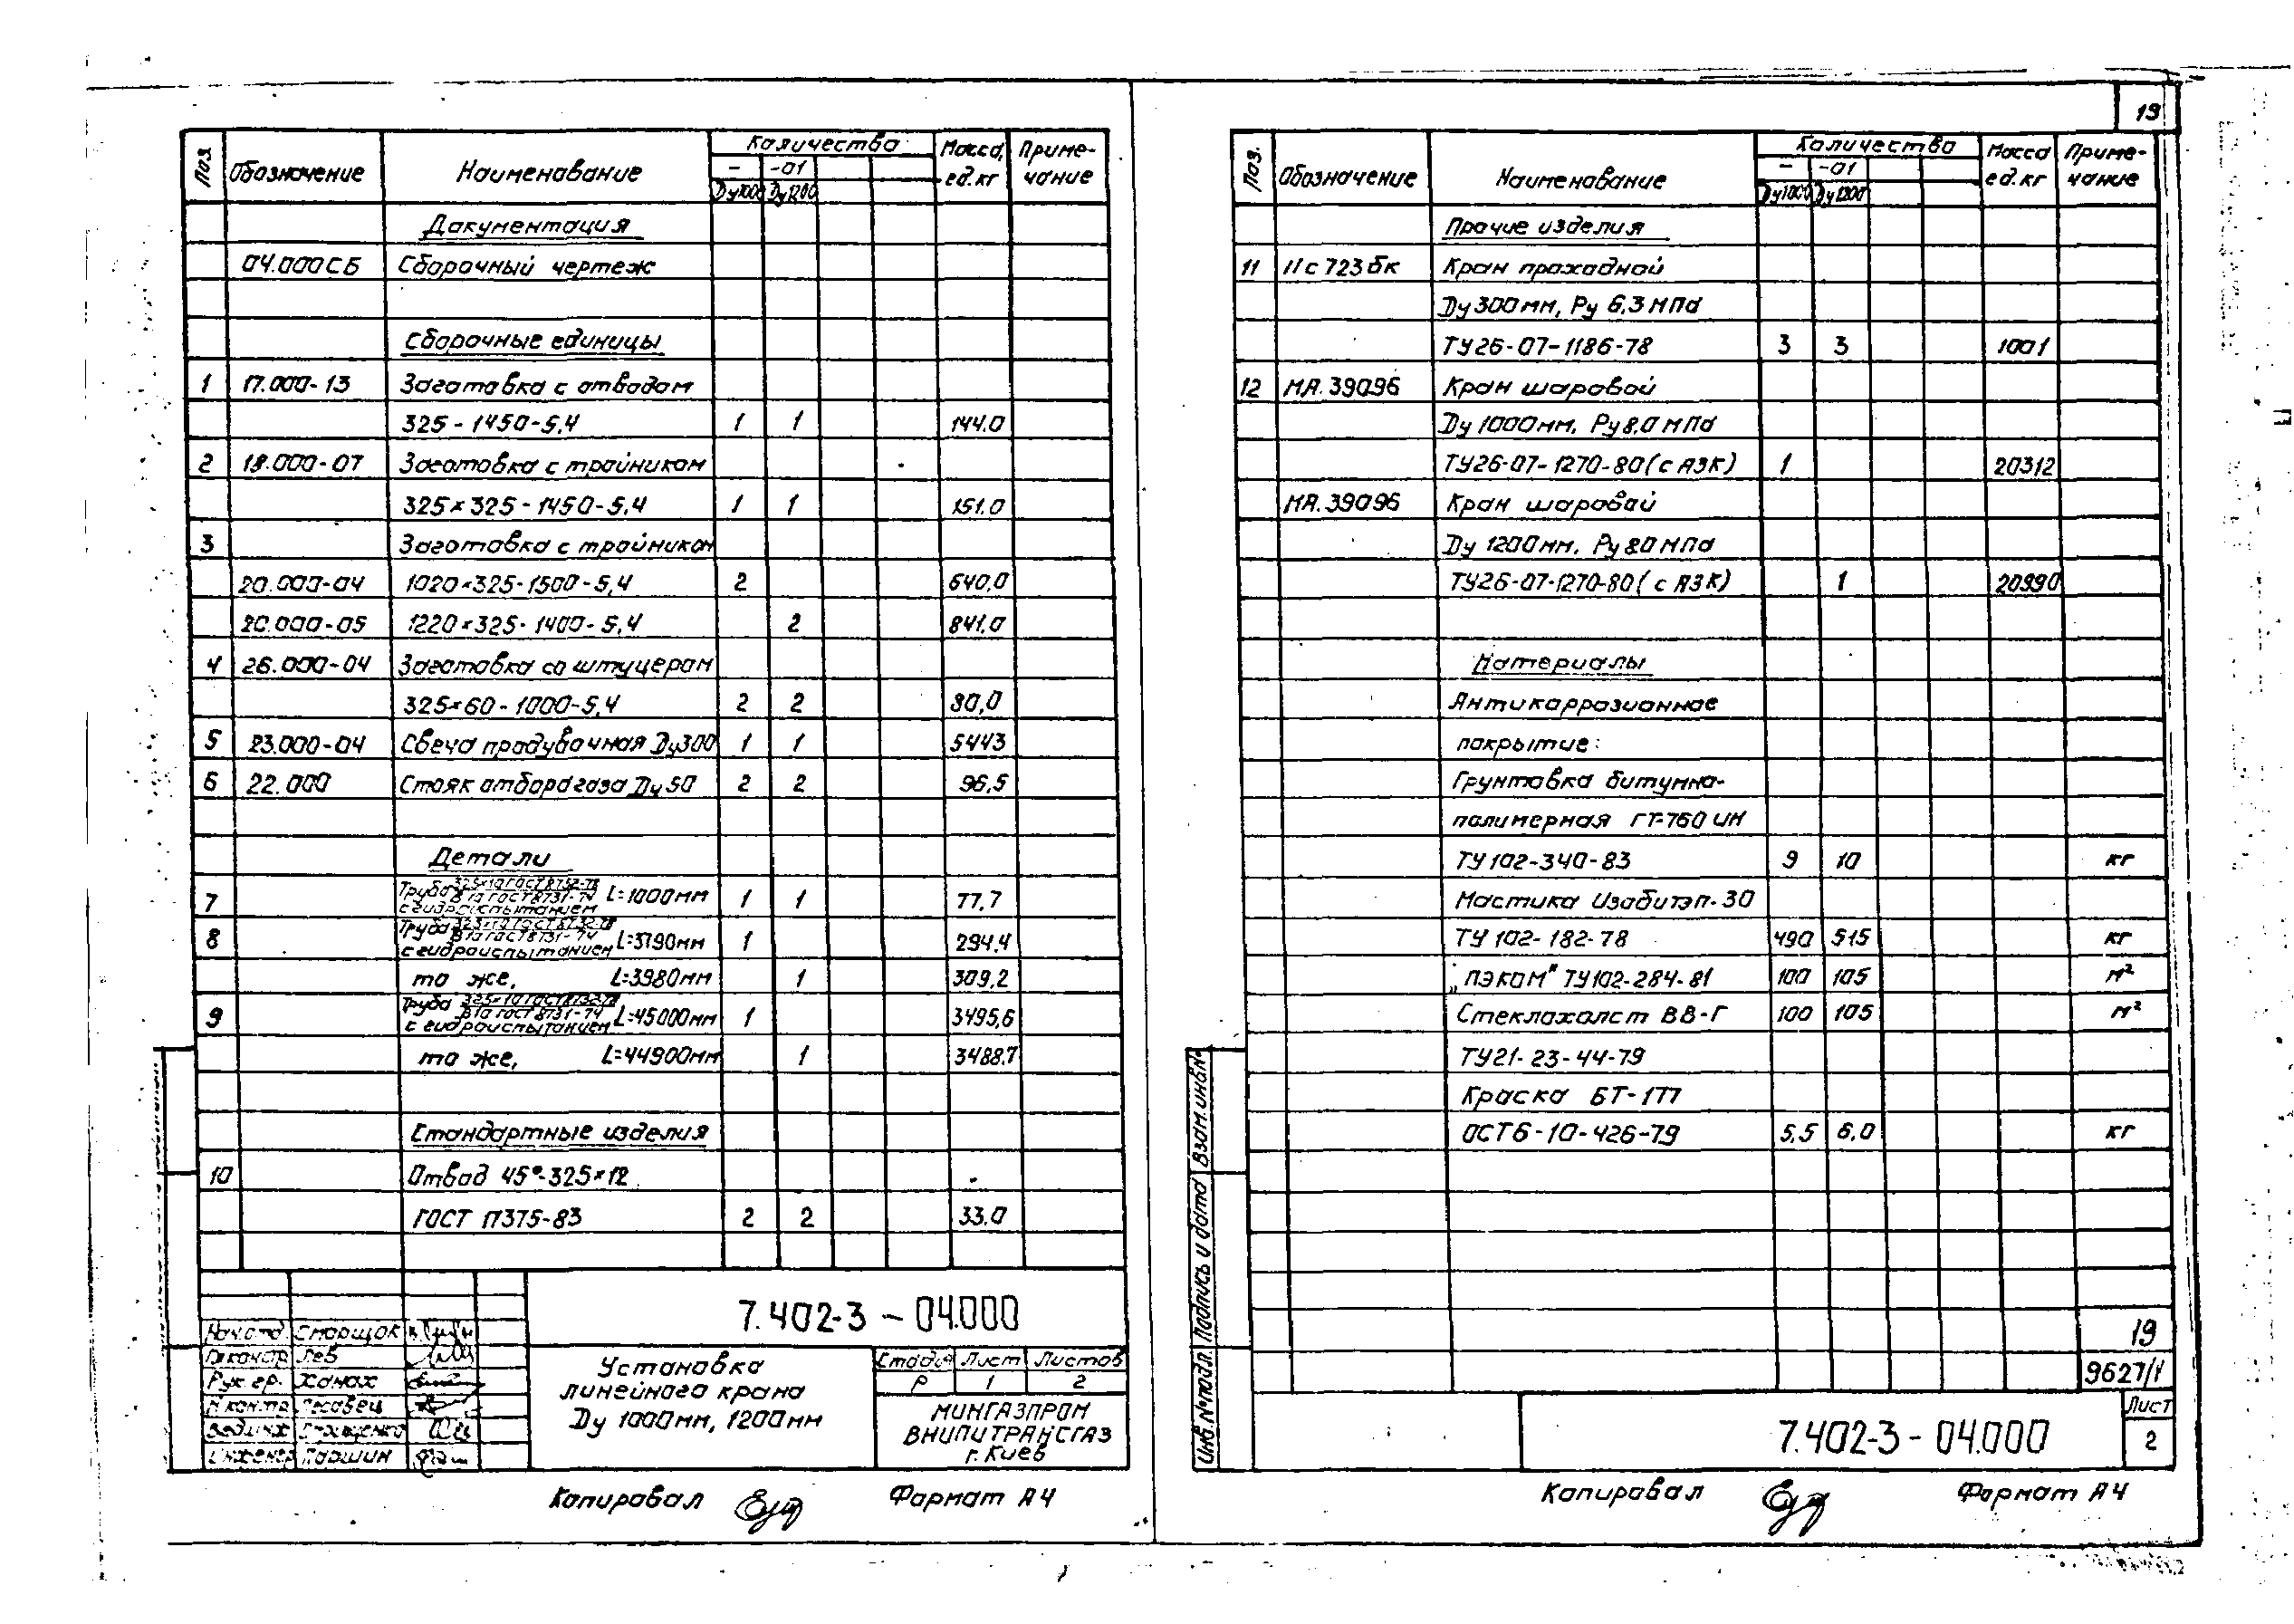 Поз. Обозначение Наименование Количество Масса, ед. кг Примечание
– -01
Ду1000 Ду1200
Документация
04.000СБ Сборочный чертеж
Сборочные единицы
1 17.000-13 Заготовка с отводом
325-1450-5,4 1 1 144.0
2 18.000-07 Заготовка с тройником
325×325-1450-5,4 1 1 151.0
3 Заготовка с тройником
20.000-04 1020×325-1500-5,4 2 640,0
20.000-05 1220×325-1400-5,4 2 841,0
4 26.000-04 Заготовка со штуцером
325×60-1000-5,4 2 2 80,0
5 23.000-04 Свеча продувочная Ду300 1 1 5443
6 22.000 Стояк отбора газа Ду50 2 2 96,5
Детали
7 Труба 325×10 ГОСТ 8732-78 / В10 ГОСТ 8731-74 с гидроиспытанием L=1000мм 1 1 77,7
8 Труба 325×10 ГОСТ 8732-78 / В10 ГОСТ 8731-74 с гидроиспытанием L=3790мм 1 294,4
то же, L=3980мм 1 309,2
9 Труба 325×10 ГОСТ 8732-78 / В10 ГОСТ 8731-74 с гидроиспытанием L=45000мм 1 3495,6
то же, L=44900мм 1 3488.7
Стандартные изделия
10 Отвод 45°-325×12
ГОСТ 17375-83 2 2 33.0
7.402-3 – 04.000
Нач.отд. Сторщок
Гл.констр. Лев
Рук.гр. Ханах
Н.контр.
Вед.инж.
Инженер Паршин
Установка
линейного крана
Ду 1000мм, 1200мм
Стадия Лист Листов
Р 1 2
МИНГАЗПРОМ
ВНИПИТРАНСГАЗ
г. Киев
Копировал Формат А4
19
Поз. Обозначение Наименование Количество Масса ед.кг Примечание
– -01
Ду1000 Ду1200
Прочие изделия
11 11с723бк Кран проходной
Ду300мм, Ру 6,3 МПа
ТУ26-07-1186-78 3 3 1001
12 МА.39096 Кран шаровой
Ду 1000мм, Ру8,0 МПа
ТУ26-07-1270-80 (с АЗК) 1 20312
МА.39096 Кран шаровой
Ду 1200мм, Ру 8.0 МПа
ТУ26-07-1270-80 (с АЗК) 1 20990
Материалы
Антикоррозионное
покрытие:
Грунтовка битумно-
полимерная ГТ-760 ИН
ТУ 102-340-83 9 10 кг
Мастика Изобитэп-30
ТУ 102-182-78 490 515 кг
„ПЭКОМ" ТУ102-284-81 100 105 м²
Стеклохолст ВВ-Г 100 105 м²
ТУ21-23-44-79
Краска БТ-177
ОСТ6-10-426-79 5,5 6,0 кг
Инв.№подл. Подпись и дата Взам.инв.№
19
9627/1
7.402-3 – 04.000
Лист
2
Копировал Формат А4